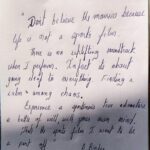 "Don't believe the movies because
life is not a sports film.
There is no uplifting soundtrack
when I perform. In fact its about
going deaf to everything. Finding a
calm among chaos.
Experience a spontaneous free adventure
a battle of will with your own mind.
That the sports film I want to be
a part off.